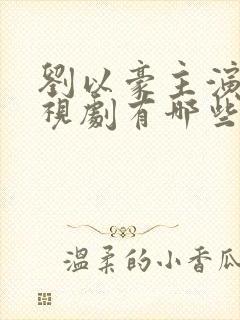 劉以豪主演
視劇有哪些
溫柔的小香瓜